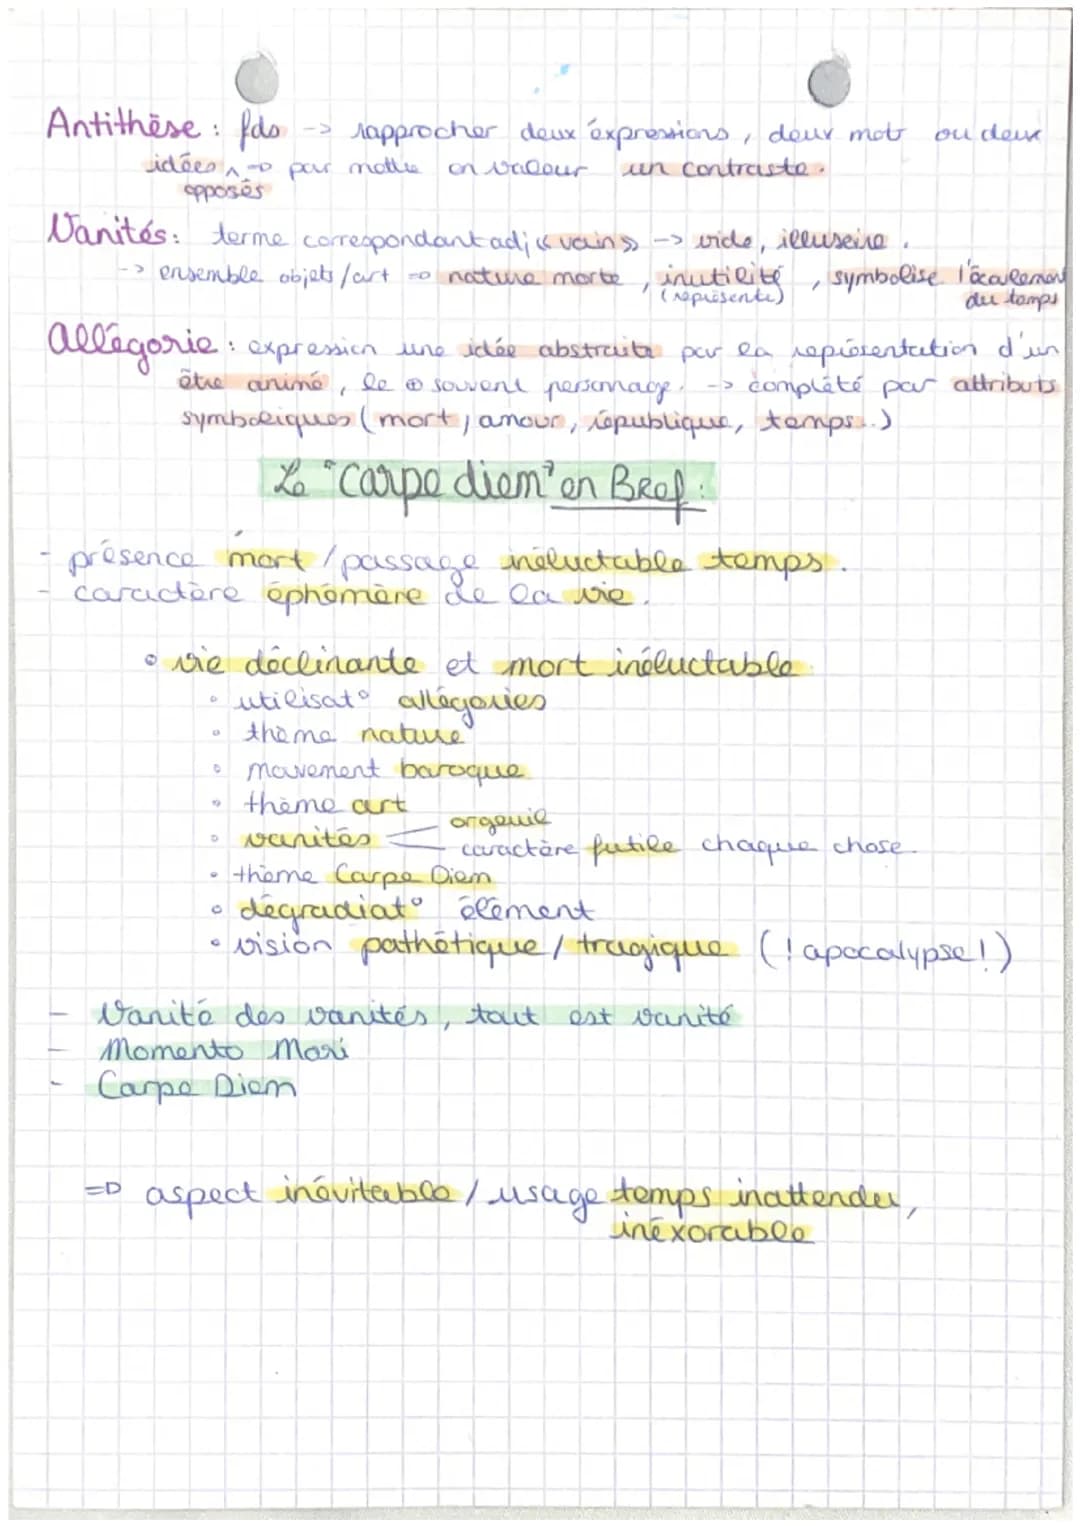 Antithèse : fds -> rapprocher deux expressions, deux mots ou deux
idées ^ => par mettre en valeur un contraste.
opposés
Vanités : terme correspondant adj « vains » -> vide, illusoire.
-> ensemble objets/art => nature morte, inutilité, symbolise l'écoulement
(représente) du temps
Allégorie : expression une idée abstraite par la représentation d'un
être animé, le ⊕ souvent personnage. -> complété par attributs
symboliques (mort, amour, république, temps...)
Le "Carpe diem" en Bref :
- présence mort / passage inéluctable temps.
- caractère éphémère de la vie.
• vie déclinante et mort inéluctable
• utilisat° allégories
• thème nature
• mouvement baroque
• thème art
orgeuil
• vanités
caractère futile chaque chose.
• thème Carpe Diem
• dégradiat° élément
• vision pathétique / tragique (! apocalypse !)
- Vanité des vanités, tout est vanité
- Momento Mori
- Carpe Diem
=> aspect inévitable / usage temps inattendu,
inéxorable